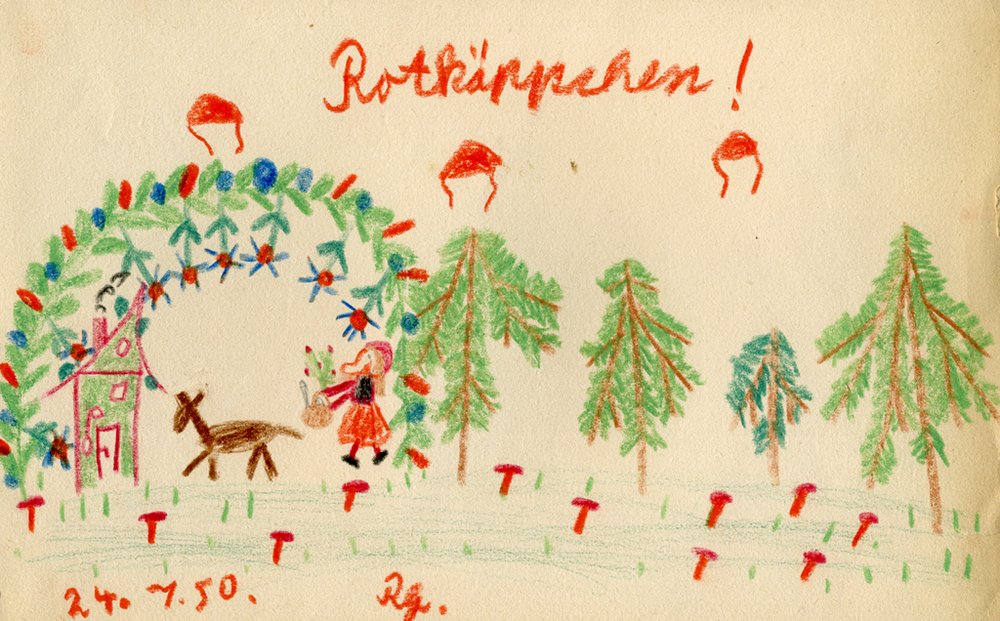 Rotkäppchen!
24. 7. 50. Rg.